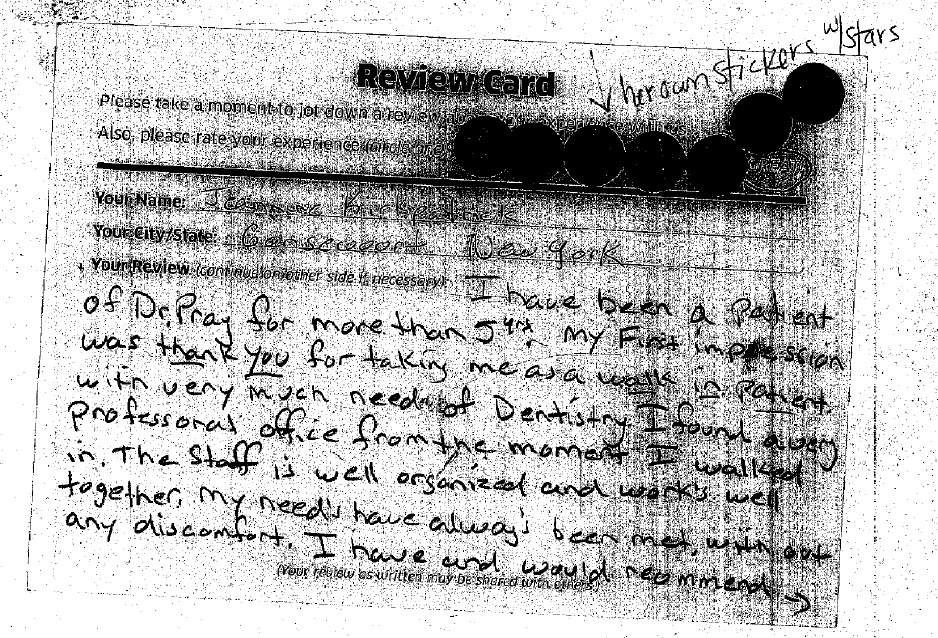 her own stickers w/stars
Review Card
Please take a moment to jot down a review
Also, please rate your experience
Your Name: Kirkpatrick
Your City/State: New York
Your Review (continue on other side if necessary) I have been a Patient
of Dr. Pray for more than 5 yrs. my First impression
was thank you for taking me as a walk in patient.
with very much needs of Dentistry I found a very
professonal office from the moment I walked
in. The Staff is well organized and work's well
together, my need's have always been met, with out
any discomfort. I have and would recommend →
(Your review as written may be shared with others)